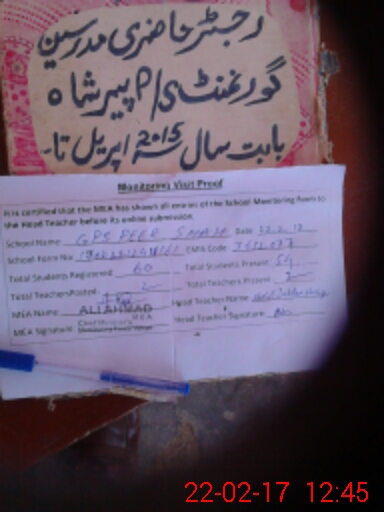 رجسٹر حاضری مدرسین
گورنمنٹ P/S پیر شاہ
بابت سال 2015 اپریل تا
Monitoring Visit Proof
It is certified that the MEA has shown all entries of the School Monitoring Form to
the Head Teacher before its online submission.
School Name GPS PEER SHAH Date 22.2.17
School Form No EMIS Code
Total Students Registered: 60 Total Students Present: 54
Total Teachers Posted: 2 Total Teachers Present 2
MEA Name: ALI AHMAD Head Teacher Name
MEA Signature: Head Teacher Signature
22-02-17 12:45